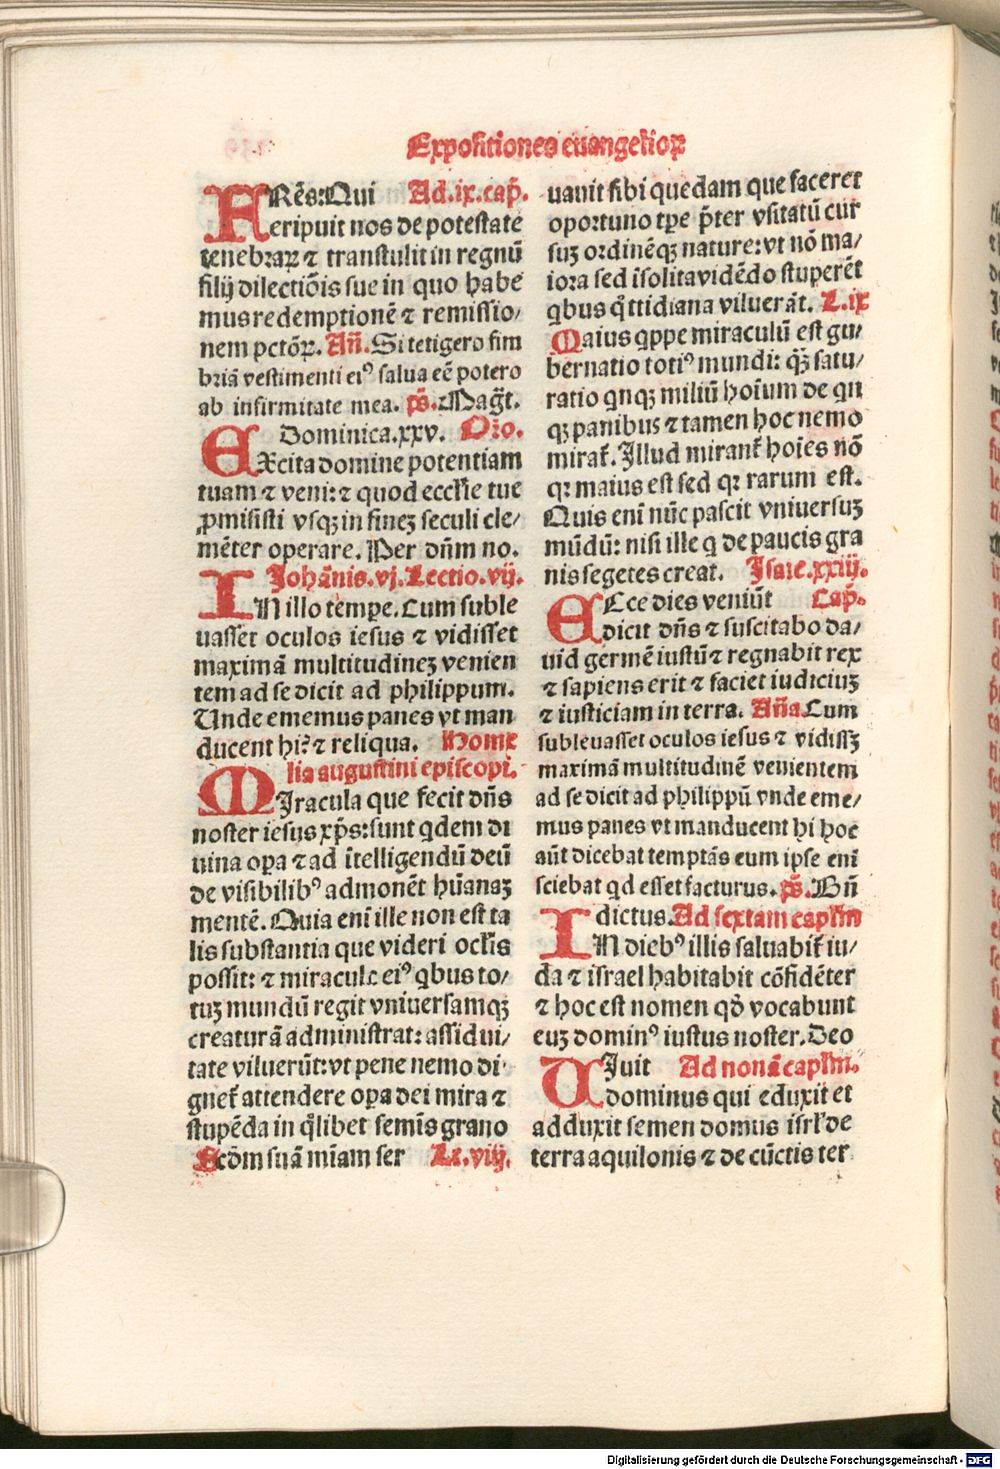 Expositiones euangelioꝝ
FRēs: Qui Ad.ix.cap̄.
eripuit nos de potestate
tenebraꝝ ⁊ transtulit in regnū
filij dilectiōis sue in quo habe
mus redemptionē ⁊ remissio/
nem pctōꝝ. Añ. Si tetigero fim
briā vestimenti eiꝰ salua eē potero
ab infirmitate mea. ps̄. Mag̅t.
Dominica.xxv. Oro.
EXcita domine potentiam
tuam ⁊ veni: ⁊ quod ecclie tue
ꝓmisisti vsqꝫ in fineꝫ seculi cle/
mēter operare. Per dn̄m no.
Johānis.vj. Lectio.vij.
IN illo tempe. Cum suble
uasset oculos iesus ⁊ vidisset
maximā multitudineꝫ venien
tem ad se dicit ad philippum.
Unde ememus panes vt man
ducent hi? ⁊ reliqua. Home
lia augustini episcopi.
MIracula que fecit dn̄s
noster iesus xp̄s: sunt qdem di
uina oꝑa ⁊ ad ītelligendū deū
de visibilibꝰ admonēt hūanaꝫ
mentē. Quia enī ille non est ta
lis substantia que videri oclis
possit: ⁊ miracula eiꝰ qbus to/
tuꝫ mundū regit vniuersamqꝫ
creaturā administrat: assidui/
tate viluerūt: vt pene nemo di
gnet̄ attendere oꝑa dei mira ⁊
stupēda in qͥlibet semīs grano
Scd̄m suā mīam ser Lc.viij.
uauit sibi quedam que faceret
oportuno tꝑe p̄ter vsitatū cur
suꝫ ordinēqꝫ nature: vt nō ma/
iora sed īsolita vidēdo stuperēt
qbus qͦttidiana viluerāt. L.ix
Maius qppe miraculū est gu/
bernatio totiꝰ mundi: qꝫ̄ satu/
ratio qnqꝫ miliū hoīum de qn
qꝫ panibus ⁊ tamen hoc nemo
mirat̄. Illud mirant̄ hoīes nō
qꝛ maius est sed qꝛ rarum est.
Quis enī nūc pascit vniuersuꝫ
mūdū: nisi ille q de paucis gra
nis segetes creat. Isaie.xxiij.
ECce dies veniūt Cap̄.
dicit dn̄s ⁊ suscitabo da/
uid germē iustū ⁊ regnabit rex
⁊ sapiens erit ⁊ faciet iudiciuꝫ
⁊ iusticiam in terra. Aña. Cum
subleuasset oculos iesus ⁊ vidissꝫ
maximā multitudinē venientem
ad se dicit ad philippū vnde eme/
mus panes vt manducent hi hoc
aūt dicebat temptās eum ipse enī
sciebat qd esset facturus. ps̄. Bn̄
dictus. Ad sextam caplm
IN diebꝰ illis saluabit̄ iu/
da ⁊ israel habitabit cōfidēter
⁊ hoc est nomen qđ vocabunt
euꝫ dominꝰ iustus noster. Deo
VIuit Ad nonā caplm.
dominus qui eduxit et
adduxit semen domus isrl' de
terra aquilonis ⁊ de cūctis ter
Digitalisierung gefördert durch die Deutsche Forschungsgemeinschaft - DFG